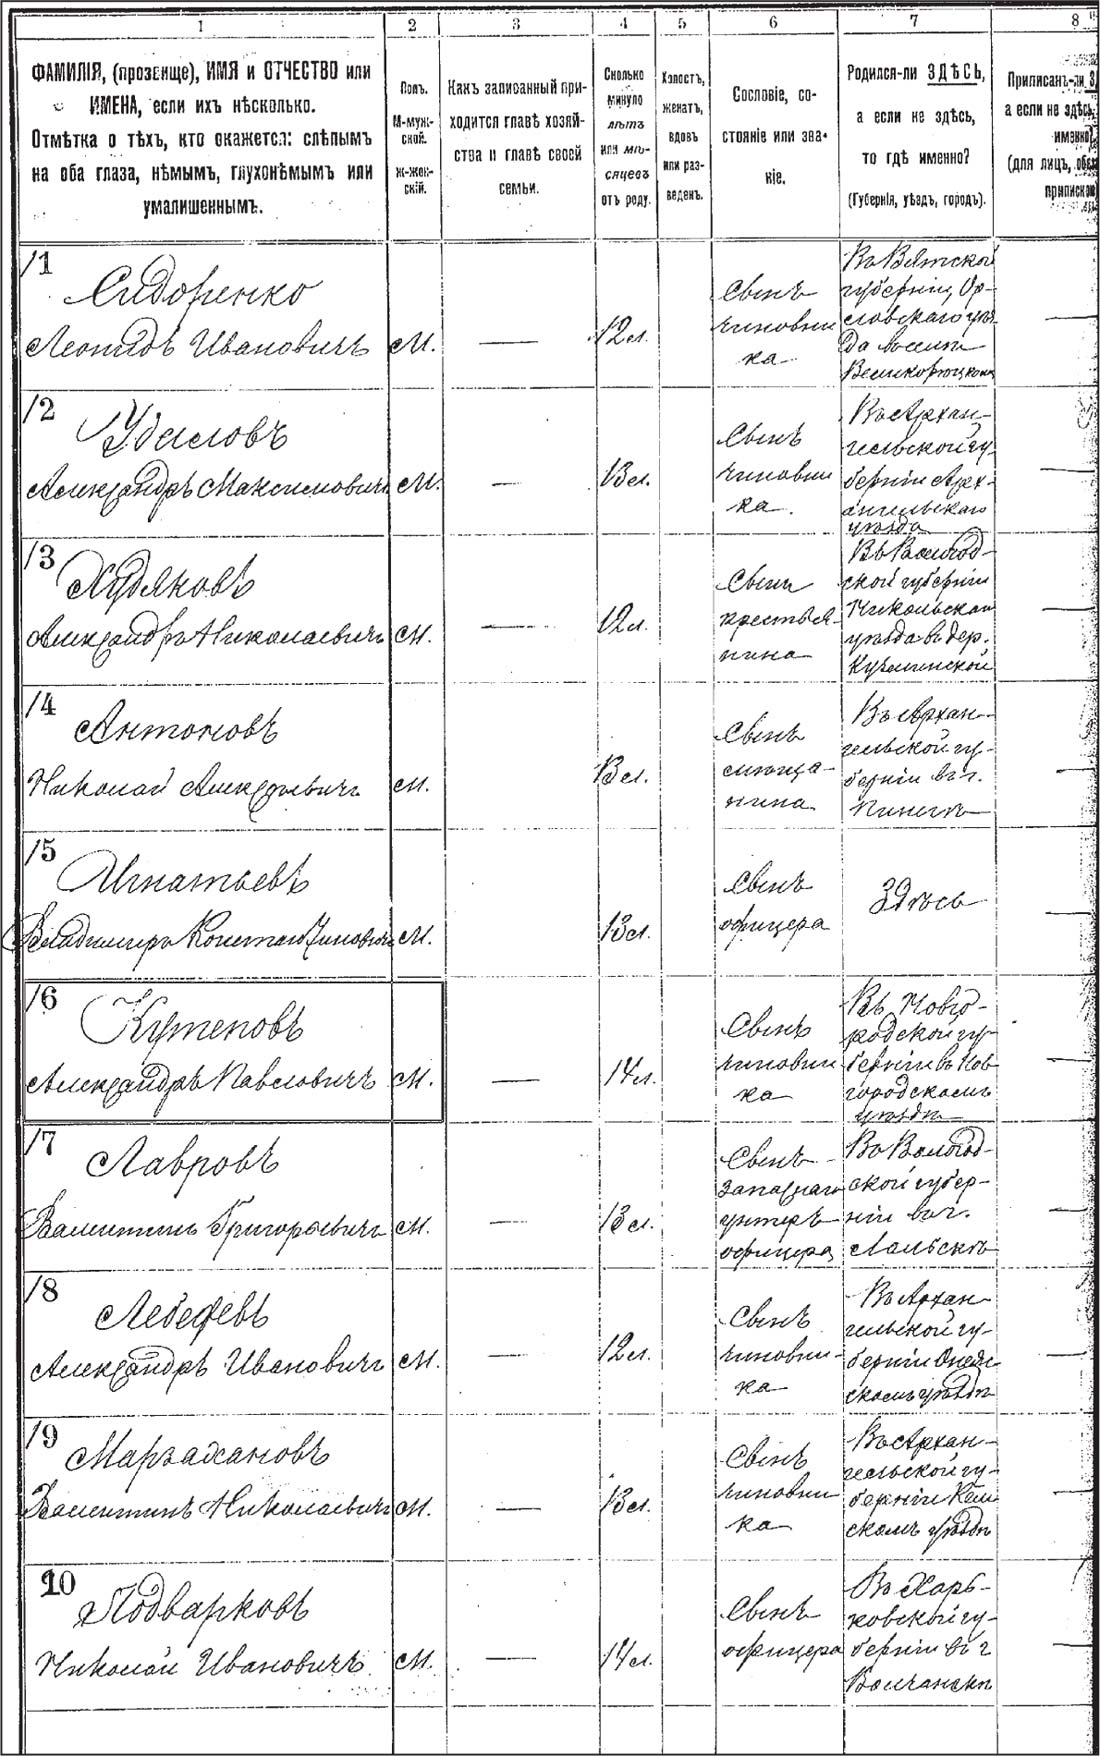 1
2
3
4
5
6
7
8
ФАМИЛІЯ, (прозвище), ИМЯ и ОТЧЕСТВО или
ИМЕНА, если ихъ нѣсколько.
Отмѣтка о тѣхъ, кто окажется: слѣпымъ
на оба глаза, нѣмымъ, глухонѣмымъ или
умалишеннымъ.
Полъ.
М-муж-
ской.
Ж-жен-
скій.
Какъ записанный при-
ходится главѣ хозяй-
ства и главѣ своей
семьи.
Сколько
минуло
лѣтъ
или мѣ-
сяцевъ
отъ роду.
Холостъ,
женатъ,
вдовъ
или раз-
веденъ.
Сословіе, со-
стояніе или зва-
ніе.
Родился-ли ЗДѢСЬ,
а если не здѣсь,
то гдѣ именно?
(Губернія, уѣздъ, городъ).
Приписанъ-ли
а если не здѣсь,
именно?
(для лицъ,
припиской
1
Сидоренко
Леонидъ Ивановичъ
М.
12 л.
Сынъ
чиновни
ка
Въ Вятской
губерніи, Ор-
ловскаго уѣз-
да
2
Удаловъ
Александръ Максимовичъ
М.
13 л.
Сынъ
чиновни
ка.
Въ Архан-
гельской гу-
берніи Арх-
ангельскаго
уѣзда
3
Худяковъ
Александръ Николаевичъ
М.
12 л.
Сынъ
крестья-
нина
Въ Вологод-
ской губерніи
Никольскаго
уѣзда въ дер.
4
Антоновъ
Николай Алексѣевичъ
М.
13 л.
Сынъ
мѣща-
нина
Въ Архан-
гельской гу-
берніи въ г.
Пинегѣ
5
Игнатьевъ
Владиміръ Константиновичъ
М.
13 л.
Сынъ
офицера
Здѣсь
6
Кутеповъ
Александръ Павловичъ
М.
14 л.
Сынъ
чиновни
ка
Въ Новго-
родской гу-
берніи въ Нов
городскомъ
уѣздѣ
7
Лавровъ
Валентинъ Григорьевичъ
М.
13 л.
Сынъ
запаснаго
унтеръ
офицера
Въ Вологод-
ской губер-
ніи въ г.
Лальскѣ
8
Лебедевъ
Александръ Ивановичъ
М.
12 л.
Сынъ
чиновни-
ка
Въ Архан-
гельской гу-
берніи Онеж-
скомъ уѣздѣ
9
Марзахановъ
Валентинъ Николаевичъ
М.
13 л.
Сынъ
чиновни
ка
Въ Архан-
гельской гу-
берніи Кем
скомъ уѣздѣ
10
Подварковъ
Николай Ивановичъ
М.
14 л.
Сынъ
офицера
Въ Харь-
ковской гу-
берніи въ г
Волчанскѣ